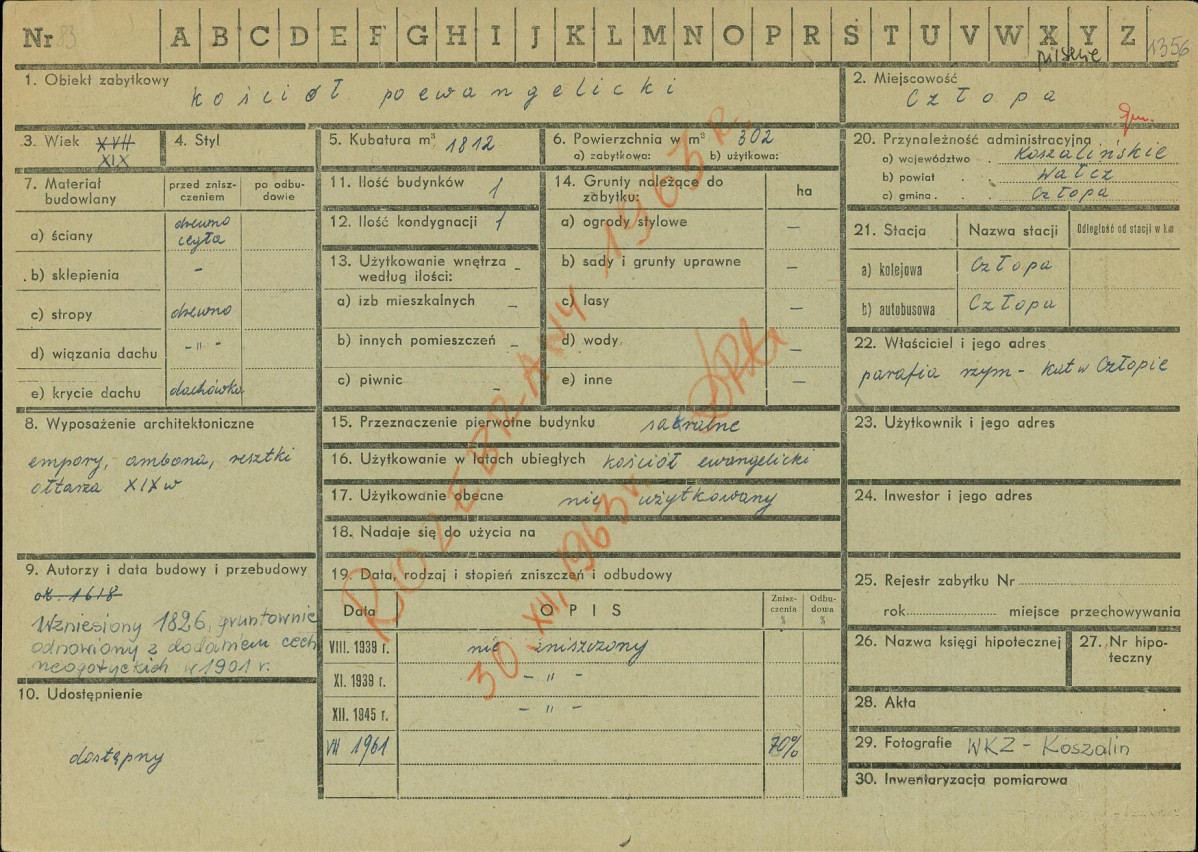 Nr 83 A B C D E F G H I J K L M N O P R S T U V W X Y Z 1356
pilskie
1. Obiekt zabytkowy kościół poewangelicki
2. Miejscowość
Człopa
gm.
3. Wiek XVII
XIX
4. Styl
5. Kubatura m³ 1812
6. Powierzchnia w m² 302
a) zabytkowa: b) użytkowa:
20. Przynależność administracyjna
a) województwo . Koszalińskie
b) powiat . . Wałcz
c) gmina . . . Człopa
7. Materiał budowlany
przed zniszczeniem
po odbudowie
a) ściany drewno
cegła
b) sklepienia -
c) stropy drewno
d) wiązania dachu -"-
e) krycie dachu dachówka
11. Ilość budynków 1
12. Ilość kondygnacji 1
13. Użytkowanie wnętrza -
według ilości:
a) izb mieszkalnych -
b) innych pomieszczeń -
c) piwnic -
14. Grunty należące do
zabytku:
ha
a) ogrody stylowe -
b) sady i grunty uprawne -
c) lasy -
d) wody -
e) inne -
21. Stacja Nazwa stacji Odległość od stacji w km
a) kolejowa Człopa
b) autobusowa Człopa
22. Właściciel i jego adres
parafia rzym-kat w Człopie
8. Wyposażenie architektoniczne
empory, ambona, resztki
ołtarza XIX w
15. Przeznaczenie pierwotne budynku sakralne
16. Użytkowanie w latach ubiegłych kościół ewangelicki
17. Użytkowanie obecne nie użytkowany
18. Nadaje się do użycia na
23. Użytkownik i jego adres
24. Inwestor i jego adres
9. Autorzy i data budowy i przebudowy
ok. 1618
Wzniesiony 1826, gruntownie
odnowiony z dodaniem cech
neogotyckich w 1901 r.
10. Udostępnienie
dostępny
19. Data, rodzaj i stopień zniszczeń i odbudowy
Data OPIS Zniszczenia % Odbudowa %
VIII. 1939 r. nie zniszczony
XI. 1939 r. -"-
XII. 1945 r. -"-
VII 1961 70%
ROZEBRANY 1963 r.
30.XII.1963 r.
25. Rejestr zabytku Nr
rok miejsce przechowywania
26. Nazwa księgi hipotecznej
27. Nr hipoteczny
28. Akta
29. Fotografie WKZ - Koszalin
30. Inwentaryzacja pomiarowa